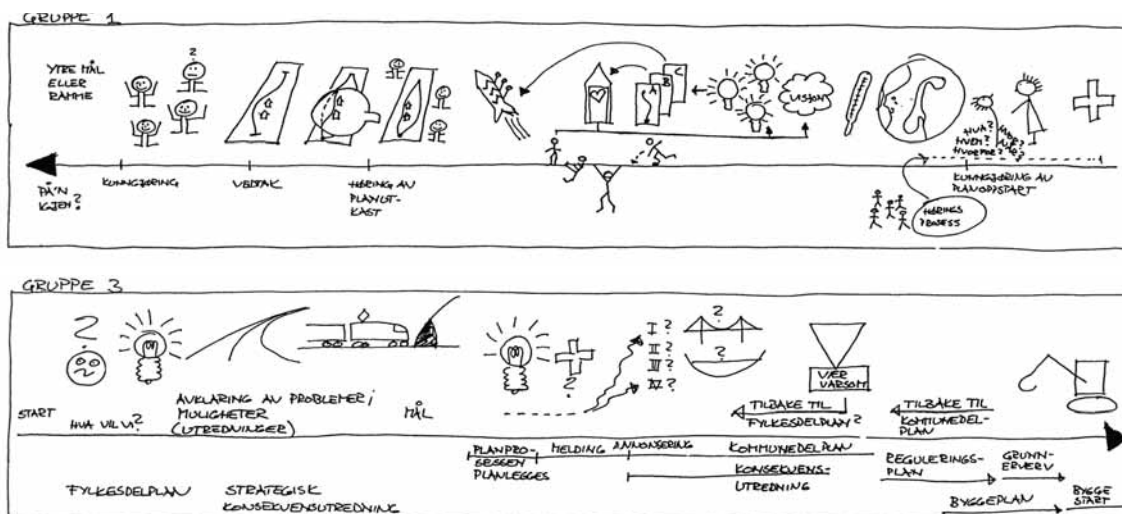 GRUPPE 1
YTRE MÅL
ELLER
RAMME
?
A
B
C
VISJON
HVA?
HVEM?
HVORFOR?
HVOR?
NÅR?
PÅ'N
IGJEN?
KUNNGJØRING
VEDTAK
HØRING AV
PLANUT-
KAST
HØRINGS
PROSESS
KUNNGJØRING AV
PLANOPPSTART
GRUPPE 3
?
START
HVA VIL VI?
AVKLARING AV PROBLEMER/
MULIGHETER
(UTREDNINGER)
MÅL
?
I ?
II ?
III ?
IV ?
?
?
VÆR
VARSOM
TILBAKE TIL
FYLKESDELPLAN?
TILBAKE TIL
KOMMUNEDEL-
PLAN
PLANPRO-
SESSEN
PLANLEGGES
MELDING
ANNONSERING
KOMMUNEDELPLAN
KONSEKVENS-
UTREDNING
REGULERINGS-
PLAN
GRUNN-
ERVERV
BYGGEPLAN
BYGGE
START
FYLKESDELPLAN
STRATEGISK
KONSEKVENSUTREDNING